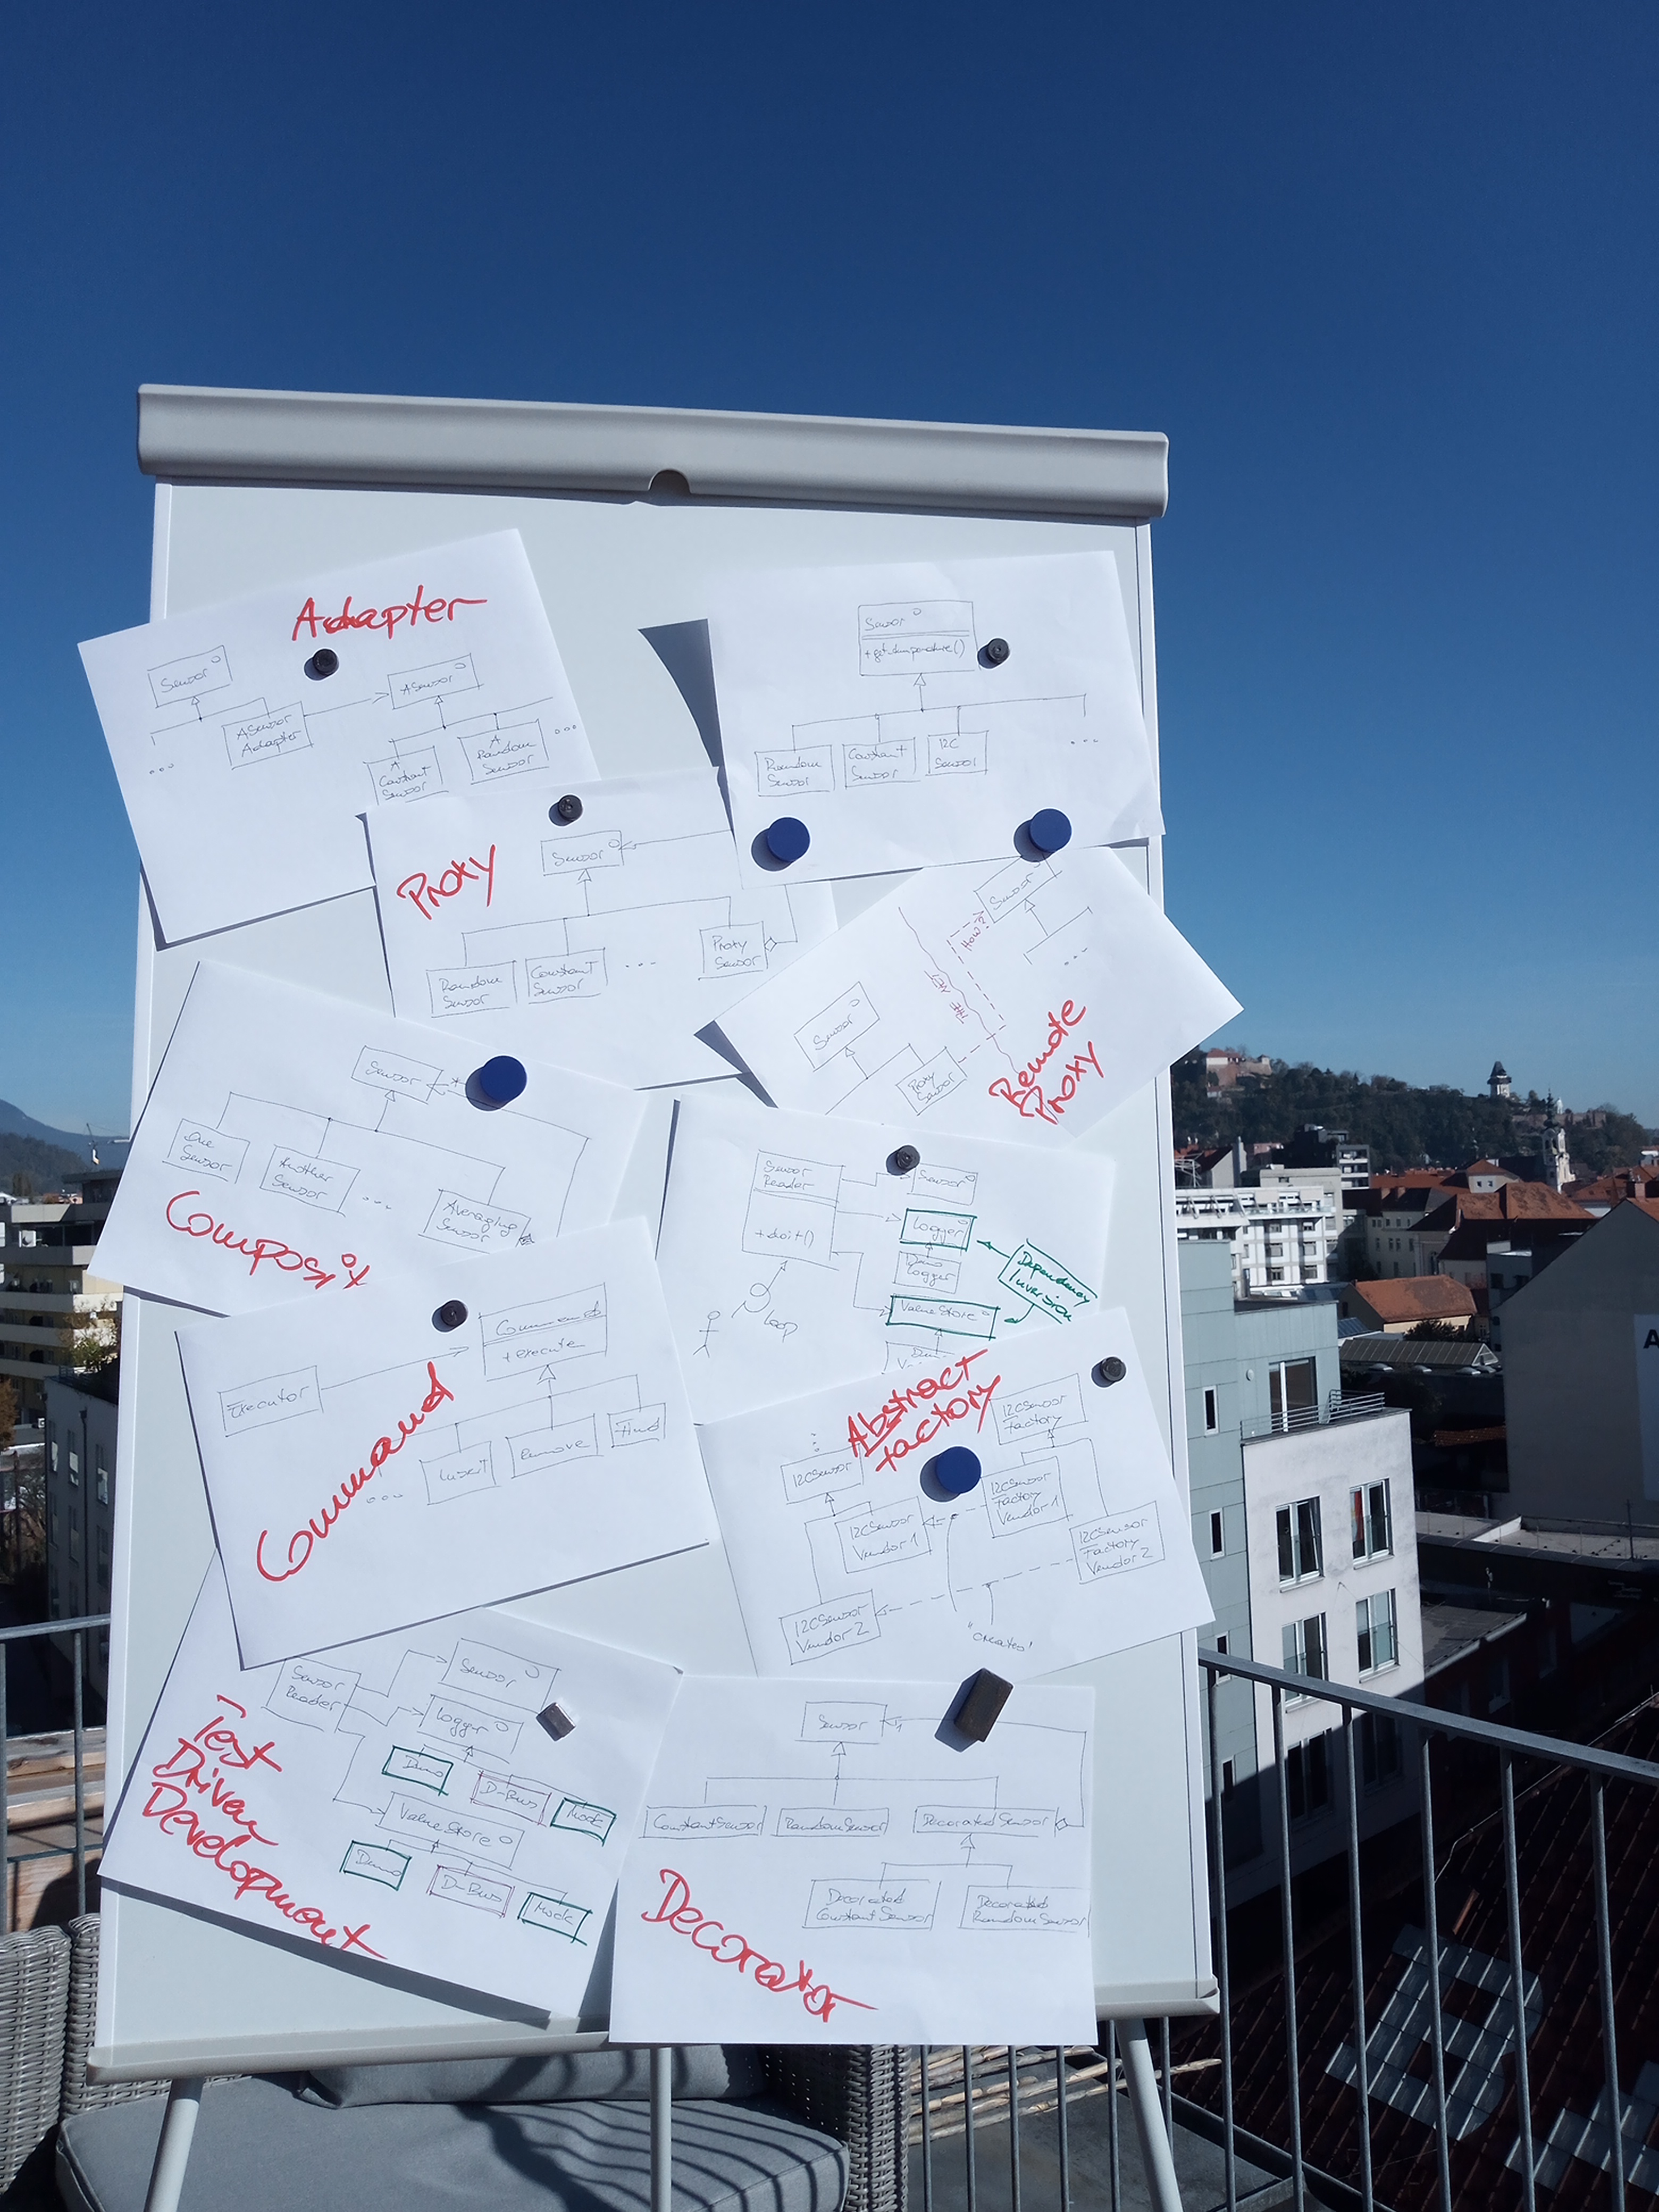 Adapter
Sensor
ASensor
ASensor
Adapter
A
Constant
Sensor
A
Random
Sensor
...
...
Sensor
+get_temperature()
Random
Sensor
Constant
Sensor
I2C
Sensor
...
Proxy
Sensor
Random
Sensor
Constant
Sensor
...
Proxy
Sensor
Sensor
How?
...
Sensor
Proxy
Sensor
Remote
Proxy
Sensor
*
One
Sensor
Another
Sensor
...
Averaging
Sensor
Composit
Sensor
Reader
+doit()
Sensor
Logger
Demo
Logger
ValueStore
Dependency
Inversion
Loop
Command
+execute
Executor
Insert
Remove
Find
...
Command
Abstract
Factory
I2CSensor
Factory
...
I2CSensor
I2CSensor
Vendor 1
I2CSensor
Factory
Vendor 1
I2CSensor
Factory
Vendor 2
I2CSensor
Vendor 2
"creates"
Sensor
Reader
Sensor
Logger
Demo
D-Bus
Mock
ValueStore
Demo
D-Bus
Mock
Test
Driven
Development
Sensor
1
ConstantSensor
RandomSensor
DecoratedSensor
Decorated
ConstantSensor
Decorated
RandomSensor
Decorator